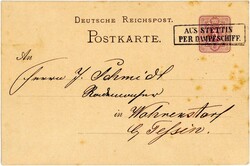 DEUTSCHE REICHSPOST.
POSTKARTE.
AUS STETTIN
PER DAMPFSCHIFF.
An
Herrn J. Schmidt
in Wahrerstorf
b/ Tessin.